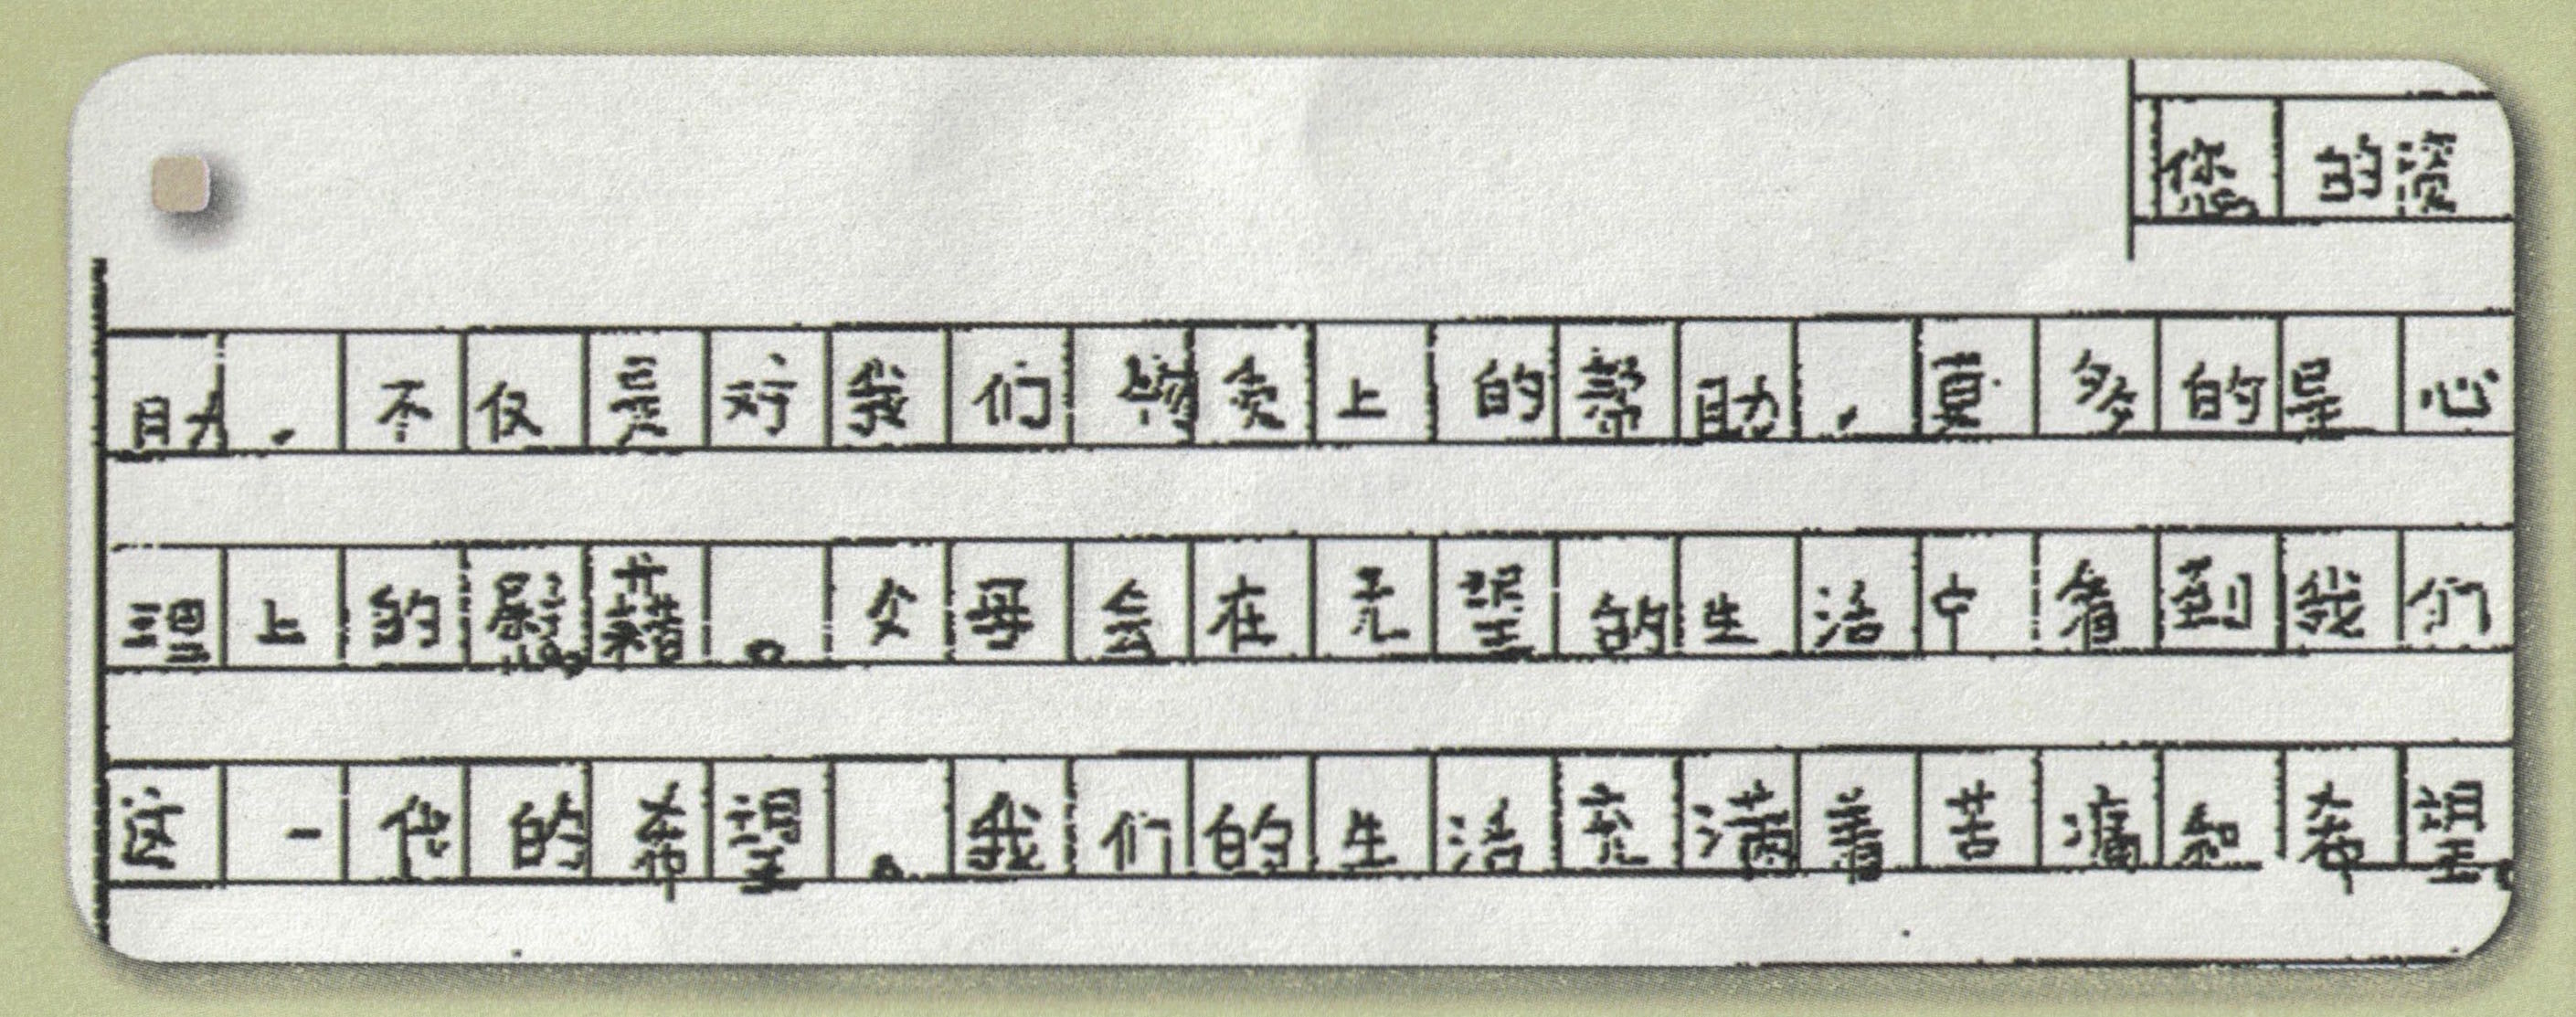 您的资
助，不仅是对我们物质上的帮助，更多的是心
理上的慰藉。父母会在无望的生活中看到我们
这一代的希望。我们的生活充满着苦痛和希望。